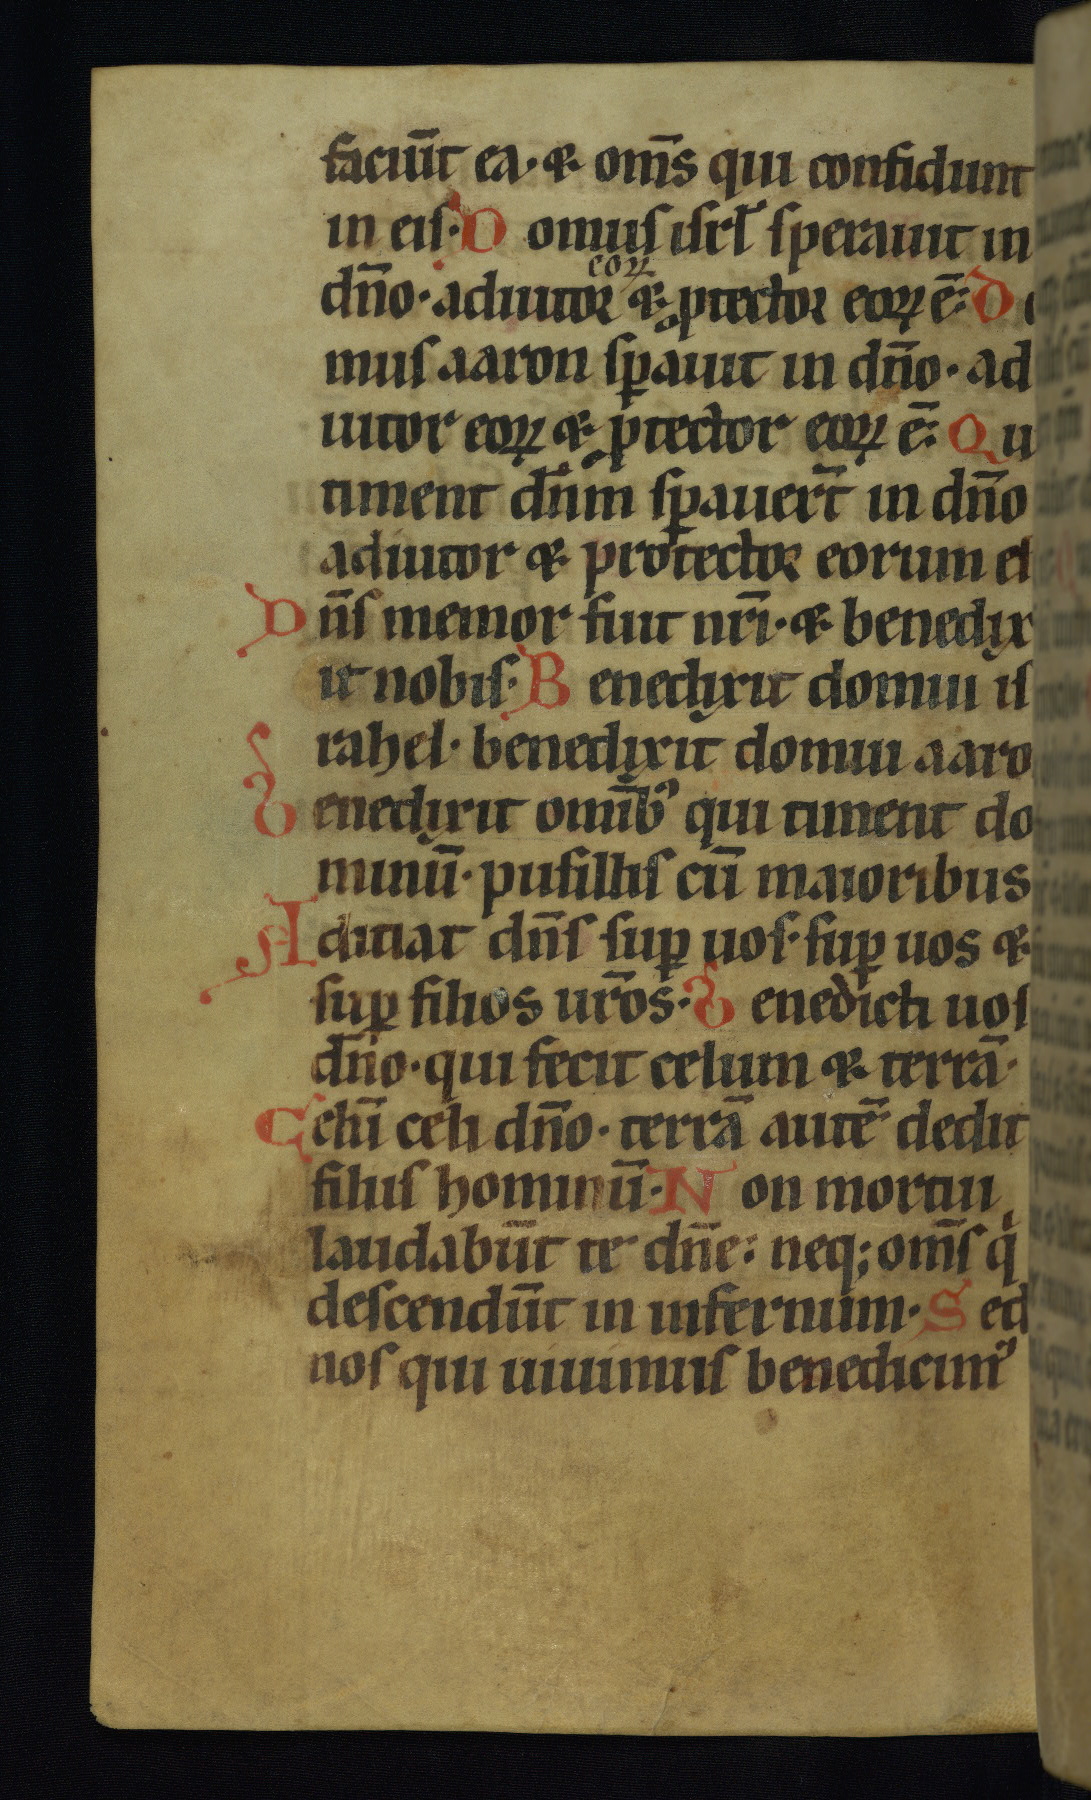 faciūt ea· ⁊ om̄s qui confidunt
in eis· Domus isrl̄ sperauit in
dn̄o· adiutor eoꝝ ⁊ ꝓtector eoꝝ ē: D
mus aaron sꝑauit in dn̄o· ad
iutor eoꝝ ⁊ ꝓtector eoꝝ ē: Qu
timent dn̄m sꝑauer̄t in dn̄o
adiutor ⁊ protector eorum
Dn̄s memor fuit nr̄i· ⁊ benedix
it nobis· Benedixit domui is
rahel· benedixit domui aaro
Benedixit omībꝰ qui timent do
minū· pusillis cū maioribus
Adiciat dn̄s suꝑ uos· suꝑ uos ⁊
suꝑ filios ur̄os· Benedicti uos
dn̄o· qui fecit celum ⁊ terrā·
Celū celi dn̄o· terrā autē dedit
filiis hominū· Non mortui
laudabūt te dn̄e: neq; om̄s qi
descendūt in infernum· Sed
nos qui uiuimus benedicimꝰ